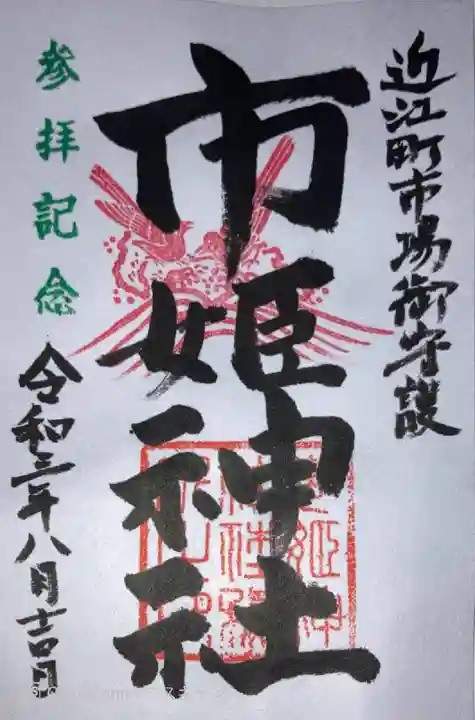 近江町市場御守護
市姫神社
参拝記念
令和三年八月吉日